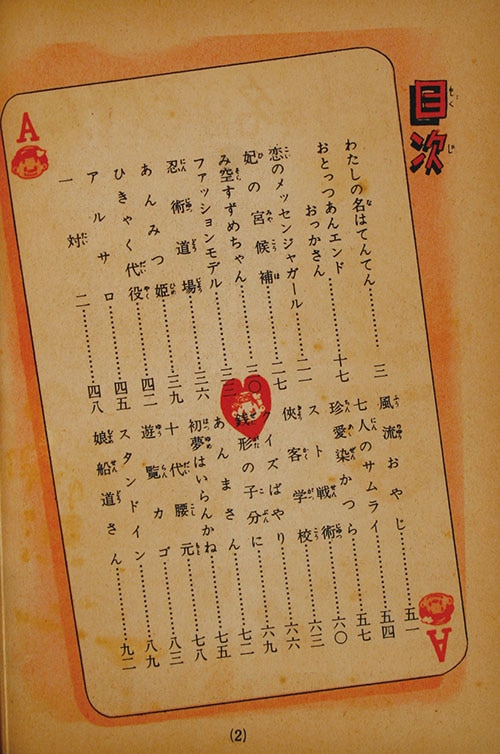 目次
わたしの名はてんてん………三
おとっつあんエンド
おっかさん………十七
恋のメッセンジャガール………二一
妃の宮候補………二七
み空すずめちゃん………三〇
ファッションモデル………三三
忍術道場………三六
あんみつ姫………三九
ひきゃく代役………四二
アルサロ………四五
一対二………四八
風流おやじ………五一
七人のサムライ………五四
珍愛染かつら………五七
スト戦術………六〇
侠客学校………六三
クイズばやり………六六
銭形の子分に………六九
あんまさん………七二
初夢はいらんかね………七五
十代腰元………七八
遊覧カゴ………八三
スタンドイン………八九
娘船道さん………九二
A
A
(2)